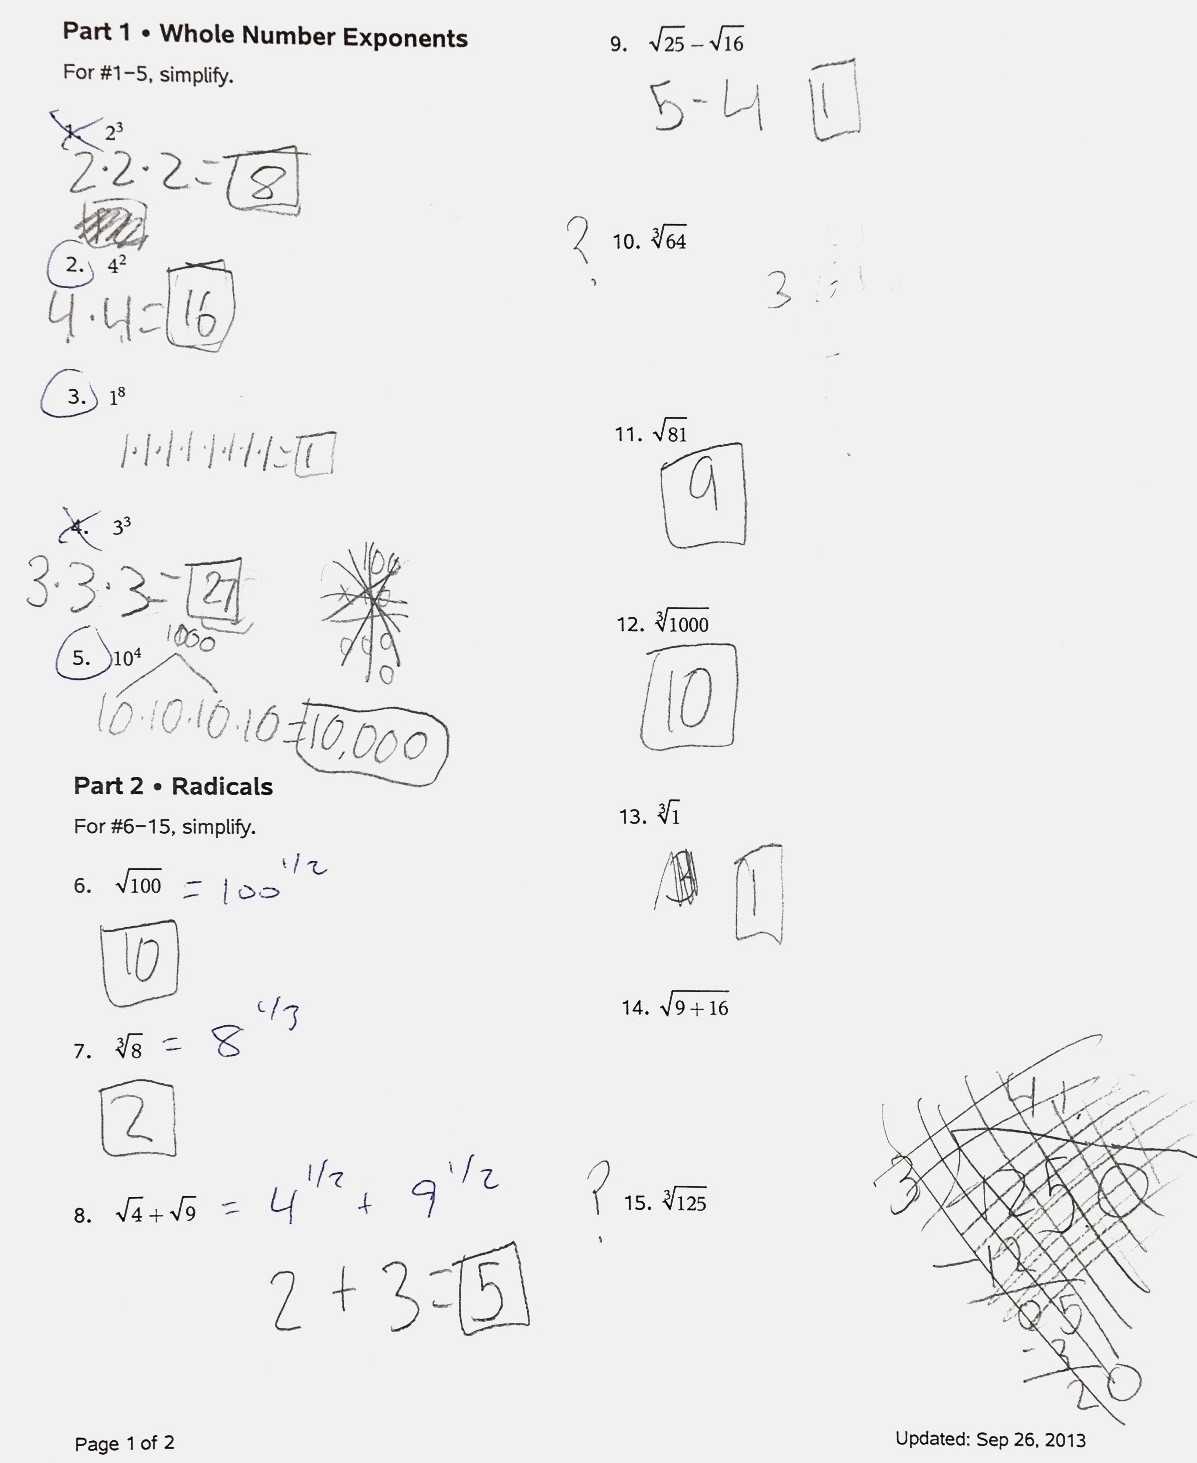 Part 1 • Whole Number Exponents
For #1–5, simplify.
1. 2³
2·2·2= 8
2. 4²
4·4= 16
3. 1⁸
1·1·1·1·1·1·1·1= 1
4. 3³
3·3·3= 27
1000
5. 10⁴
10·10·10·10=10,000
Part 2 • Radicals
For #6–15, simplify.
6. √100 = 100^1/2
10
7. ∛8 = 8^1/3
2
8. √4 + √9 = 4^1/2 + 9^1/2
2 + 3 = 5
Page 1 of 2
9. √25 – √16
5 - 4 1
? 10. ∛64
3
11. √81
9
12. ∛1000
10
13. ∛1
1
14. √9 + 16
? 15. ∛125
41.
3 125.0
-12
05
-3
20
Updated: Sep 26, 2013